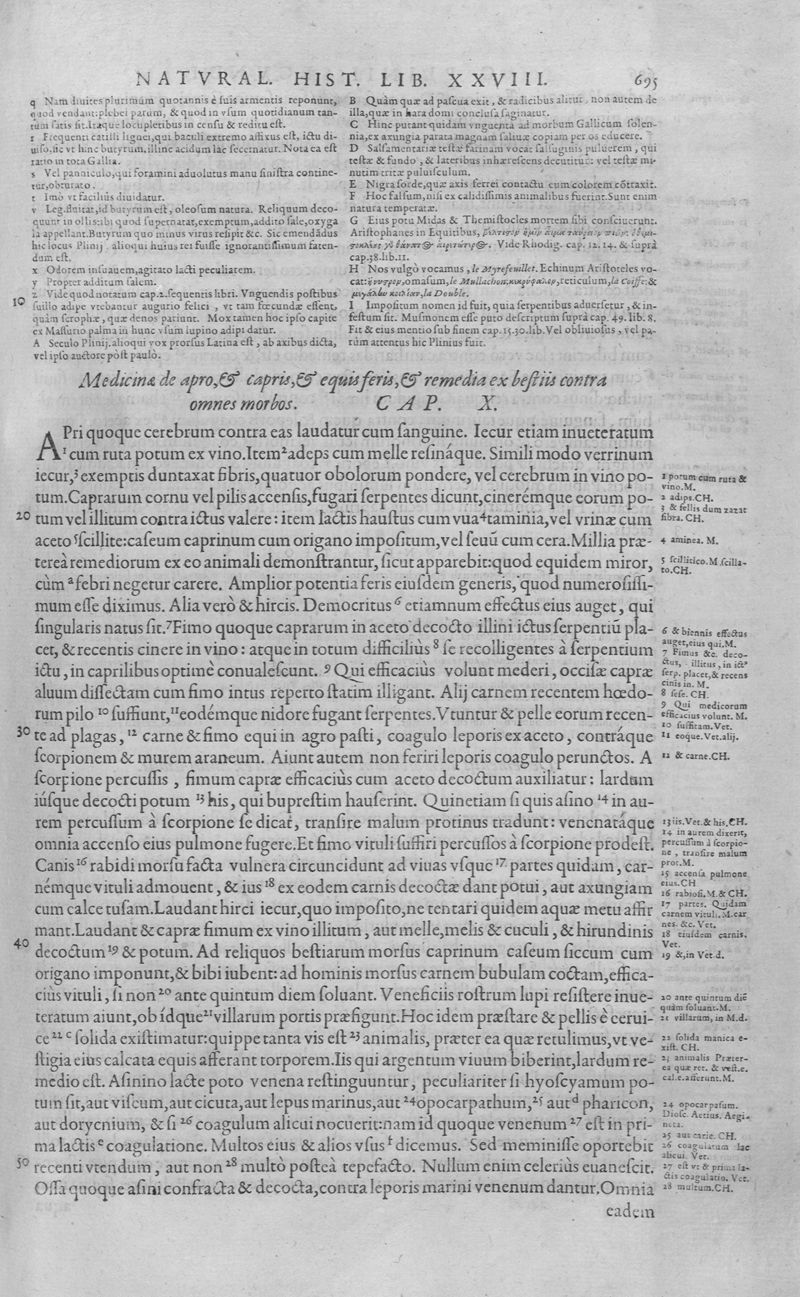 NATVRAL. HIST. LIB. XXVIII.
695
q Nam diuites plurimum quotannis è suis armentis reponunt,
quod vendant: plebei parùm, & quod in vsum quotidianum tan-
tùm satis sit. Itaque locupletibus in censu & reditu est.
r Frequenti catilli lignei, qui baculi extremo affixus est, ictu di-
uiso, sic vt hinc butyrum, illinc acidum lac secernatur. Nota ea est
ratio in tota Gallia.
s Vel panniculo, qui foramini aduolutus manu sinistra contine-
tur, obturato.
t Imò vt faciliùs diuidatur.
v Leg. finitat, id butyrum est, oleosum natura. Reliquum deco-
quunt in ollis: ibi quod supernatat, exemptum, addito sale, oxyga
la appellant. Butyrum quo minus virus resipit &c. Sic emendādus
hic locus Plinij, alioqui huius rei fuisse ignorantissimum faten-
dum est.
x Odorem insuauem, agitato lacti peculiarem.
y Propter additum salem.
z Vide quod notatum cap. 2. sequentis libri. Vnguendis postibus
10
suillo adipe vtebantur augurio felici, vt tam fœcundæ essent,
quàm scrophæ, quæ denos pariunt. Mox tamen hoc ipso capite
ex Massurio palma in hunc vsum lupino adipi datur.
A Seculo Plinij. alioqui vox prorsus Latina est, ab axibus dicta,
vel ipso auctore pòst paulò.
B Quàm quæ ad pascua exit, & radicibus alitur, non autem de
illa, quæ in hara domi conclusa saginatur.
C Hinc putant quidam vnguenta ad morbum Gallicum solen-
nia, ex axungia parata magnam saliuæ copiam per os educere.
D Salsamentariæ testæ farinam vocat salsuginis puluerem, qui
testæ & fundo, & lateribus inhærescens decutitur: vel testæ mi-
nutim tritæ puluisculum.
E Nigra sorde, quæ axis ferrei contactu eum colorem cōtraxit.
F Hoc falsum, nisi ex calidissimis animalibus fuerint. Sunt enim
natura temperatæ.
G Eius potu Midas & Themistocles mortem sibi consciuerunt.
Aristophanes in Equitibus,
Vide Rhodig. cap. 12. 14. & suprà
cap. 38. lib. 11.
H Nos vulgò vocamus, le Myrefeuillet. Echinum Aristoteles vo-
cat: omasum, le Mullachon, reticulum, la Coiffe: &
la Double.
I Impositum nomen id fuit, quia serpentibus aduersetur, & in-
festum sit. Musmonem esse puto descriptum suprà cap. 49. lib. 8.
Fit & eius mentio sub finem cap. 15. 30. lib. Vel obliuiosus, vel pa-
rùm attentus hic Plinius fuit.
Medicina de apro, & capris, & equis feris, & remedia ex bestiis contra
omnes morbos. CAP. X.
APri quoque cerebrum contra eas laudatur cum sanguine. Iecur etiam inueteratum
1 cum ruta potum ex vino. Item 2 adeps cum melle resináque. Simili modo verrinum
iecur, 3 exemptis duntaxat fibris, quatuor obolorum pondere, vel cerebrum in vino po-
tum. Caprarum cornu vel pilis accensis, fugari serpentes dicunt, cinerémque eorum po-
20 tum vel illitum contra ictus valere: item lactis haustus cum vua 4 taminia, vel vrinæ cum
aceto 5 scillite: caseum caprinum cum origano impositum, vel seuū cum cera. Millia præ-
tereà remediorum ex eo animali demonstrantur, sicut apparebit: quod equidem miror,
cùm a febri negetur carere. Amplior potentia feris eiusdem generis, quod numerosissi-
mum esse diximus. Alia verò & hircis. Democritus 6 etiamnum effectus eius auget, qui
singularis natus sit. 7 Fimo quoque caprarum in aceto decocto illini ictus serpentiū pla-
cet, & recentis cinere in vino: atque in totum difficiliùs 8 se recolligentes à serpentium
ictu, in caprilibus optimè conualescunt. 9 Qui efficaciùs volunt mederi, occisæ capræ
aluum dissectam cum fimo intus reperto statim illigant. Alij carnem recentem hœdo-
rum pilo 10 suffiunt, 11 eodémque nidore fugant serpentes. Vtuntur & pelle eorum recen-
30 te ad plagas, 12 carne & fimo equi in agro pasti, coagulo leporis ex aceto, contráque
scorpionem & murem araneum. Aiunt autem non feriri leporis coagulo perunctos. A
scorpione percussis, fimum capræ efficaciùs cum aceto decoctum auxiliatur: lardum
iúsque decocti potum 13 his, qui buprestim hauserint. Quinetiam si quis asino 14 in au-
rem percussum à scorpione se dicat, transire malum protinus tradunt: venenatáque
omnia accenso eius pulmone fugere. Et fimo vituli suffiri percussos à scorpione prodest.
Canis 16 rabidi morsu facta vulnera circuncidunt ad viuas vsque 17 partes quidam, car-
némque vituli admouent, & ius 18 ex eodem carnis decoctæ dant potui, aut axungiam
cum calce tusam. Laudant hirci iecur, quo imposito, ne tentari quidem aquæ metu affir
mant. Laudant & capræ fimum ex vino illitum, aut melle, melis & cuculi, & hirundinis
40 decoctum 19 & potum. Ad reliquos bestiarum morsus caprinum caseum siccum cum
origano imponunt, & bibi iubent: ad hominis morsus carnem bubulam coctam, effica-
ciùs vituli, si non 20 ante quintum diem soluant. Veneficiis rostrum lupi resistere inue-
teratum aiunt, ob ídque 21 villarum portis præfigunt. Hoc idem præstare & pellis è cerui-
ce 22 c solida existimatur: quippe tanta vis est 23 animalis, præter ea quæ retulimus, vt ve-
stigia eius calcata equis afferant torporem. Iis qui argentum viuum biberint, lardum re-
medio est. Asinino lacte poto venena restinguuntur, peculiariter si hyoscyamum po-
tum sit, aut viscum, aut cicuta, aut lepus marinus, aut 24 opocarpathum, 25 aut d pharicon,
aut dorycnium, & si 26 coagulum alicui nocuerit: nam id quoque venenum 27 est in pri-
ma lactis e coagulatione. Multos eius & alios vsus f dicemus. Sed meminisse oportebit
50 recenti vtendum, aut non 28 multò posteà tepefacto. Nullum enim celeriùs euanescit.
Ossa quoque asini confracta & decocta, contra leporis marini venenum dantur. Omnia
eadem
1 potum cum ruta &
vino. M.
2 adips. CH.
3 & fellis dum taxat
fibra. CH.
4 aminea. M.
5 scillitico. M. scilla-
to. CH.
6 & biennis effectus
auget, eius qui. M.
7 Fimus &c. deco-
ctus, illitus, in ictª
serp. placet, & recens
cinis in. M.
8 sese. CH.
9 Qui medicorum
efficacius volunt. M.
10 suffitam. Vet.
11 eoque. Vet. alij.
12 & carne. CH.
13 iis. Vet. & his. CH.
14 in aurem dixerit,
percussum à scorpio-
ne, transire malum
prot. M.
15 accensa pulmone
eius. CH
16 rabiosi. M. & CH.
17 partes. Quidam
carnem vituli. M. car
nes. &c. Vet.
18 eiusdem carnis.
Vet.
19 &, in Vet d.
20 ante quintum diē
quàm soluant. M.
21 villarum, in M. d.
22 solida manica e-
xist. CH.
23 animalis Præter-
ea quæ ret. & vest. e.
cal. e. afferunt. M.
24 opocarpasum.
Diosc. Aetius. Aegi-
neta.
25 aut carie. CH.
26 coagulatum lac
alicui. Vet.
27 est vt & prima la-
ctis coagulatio. Vet.
28 multum. CH.